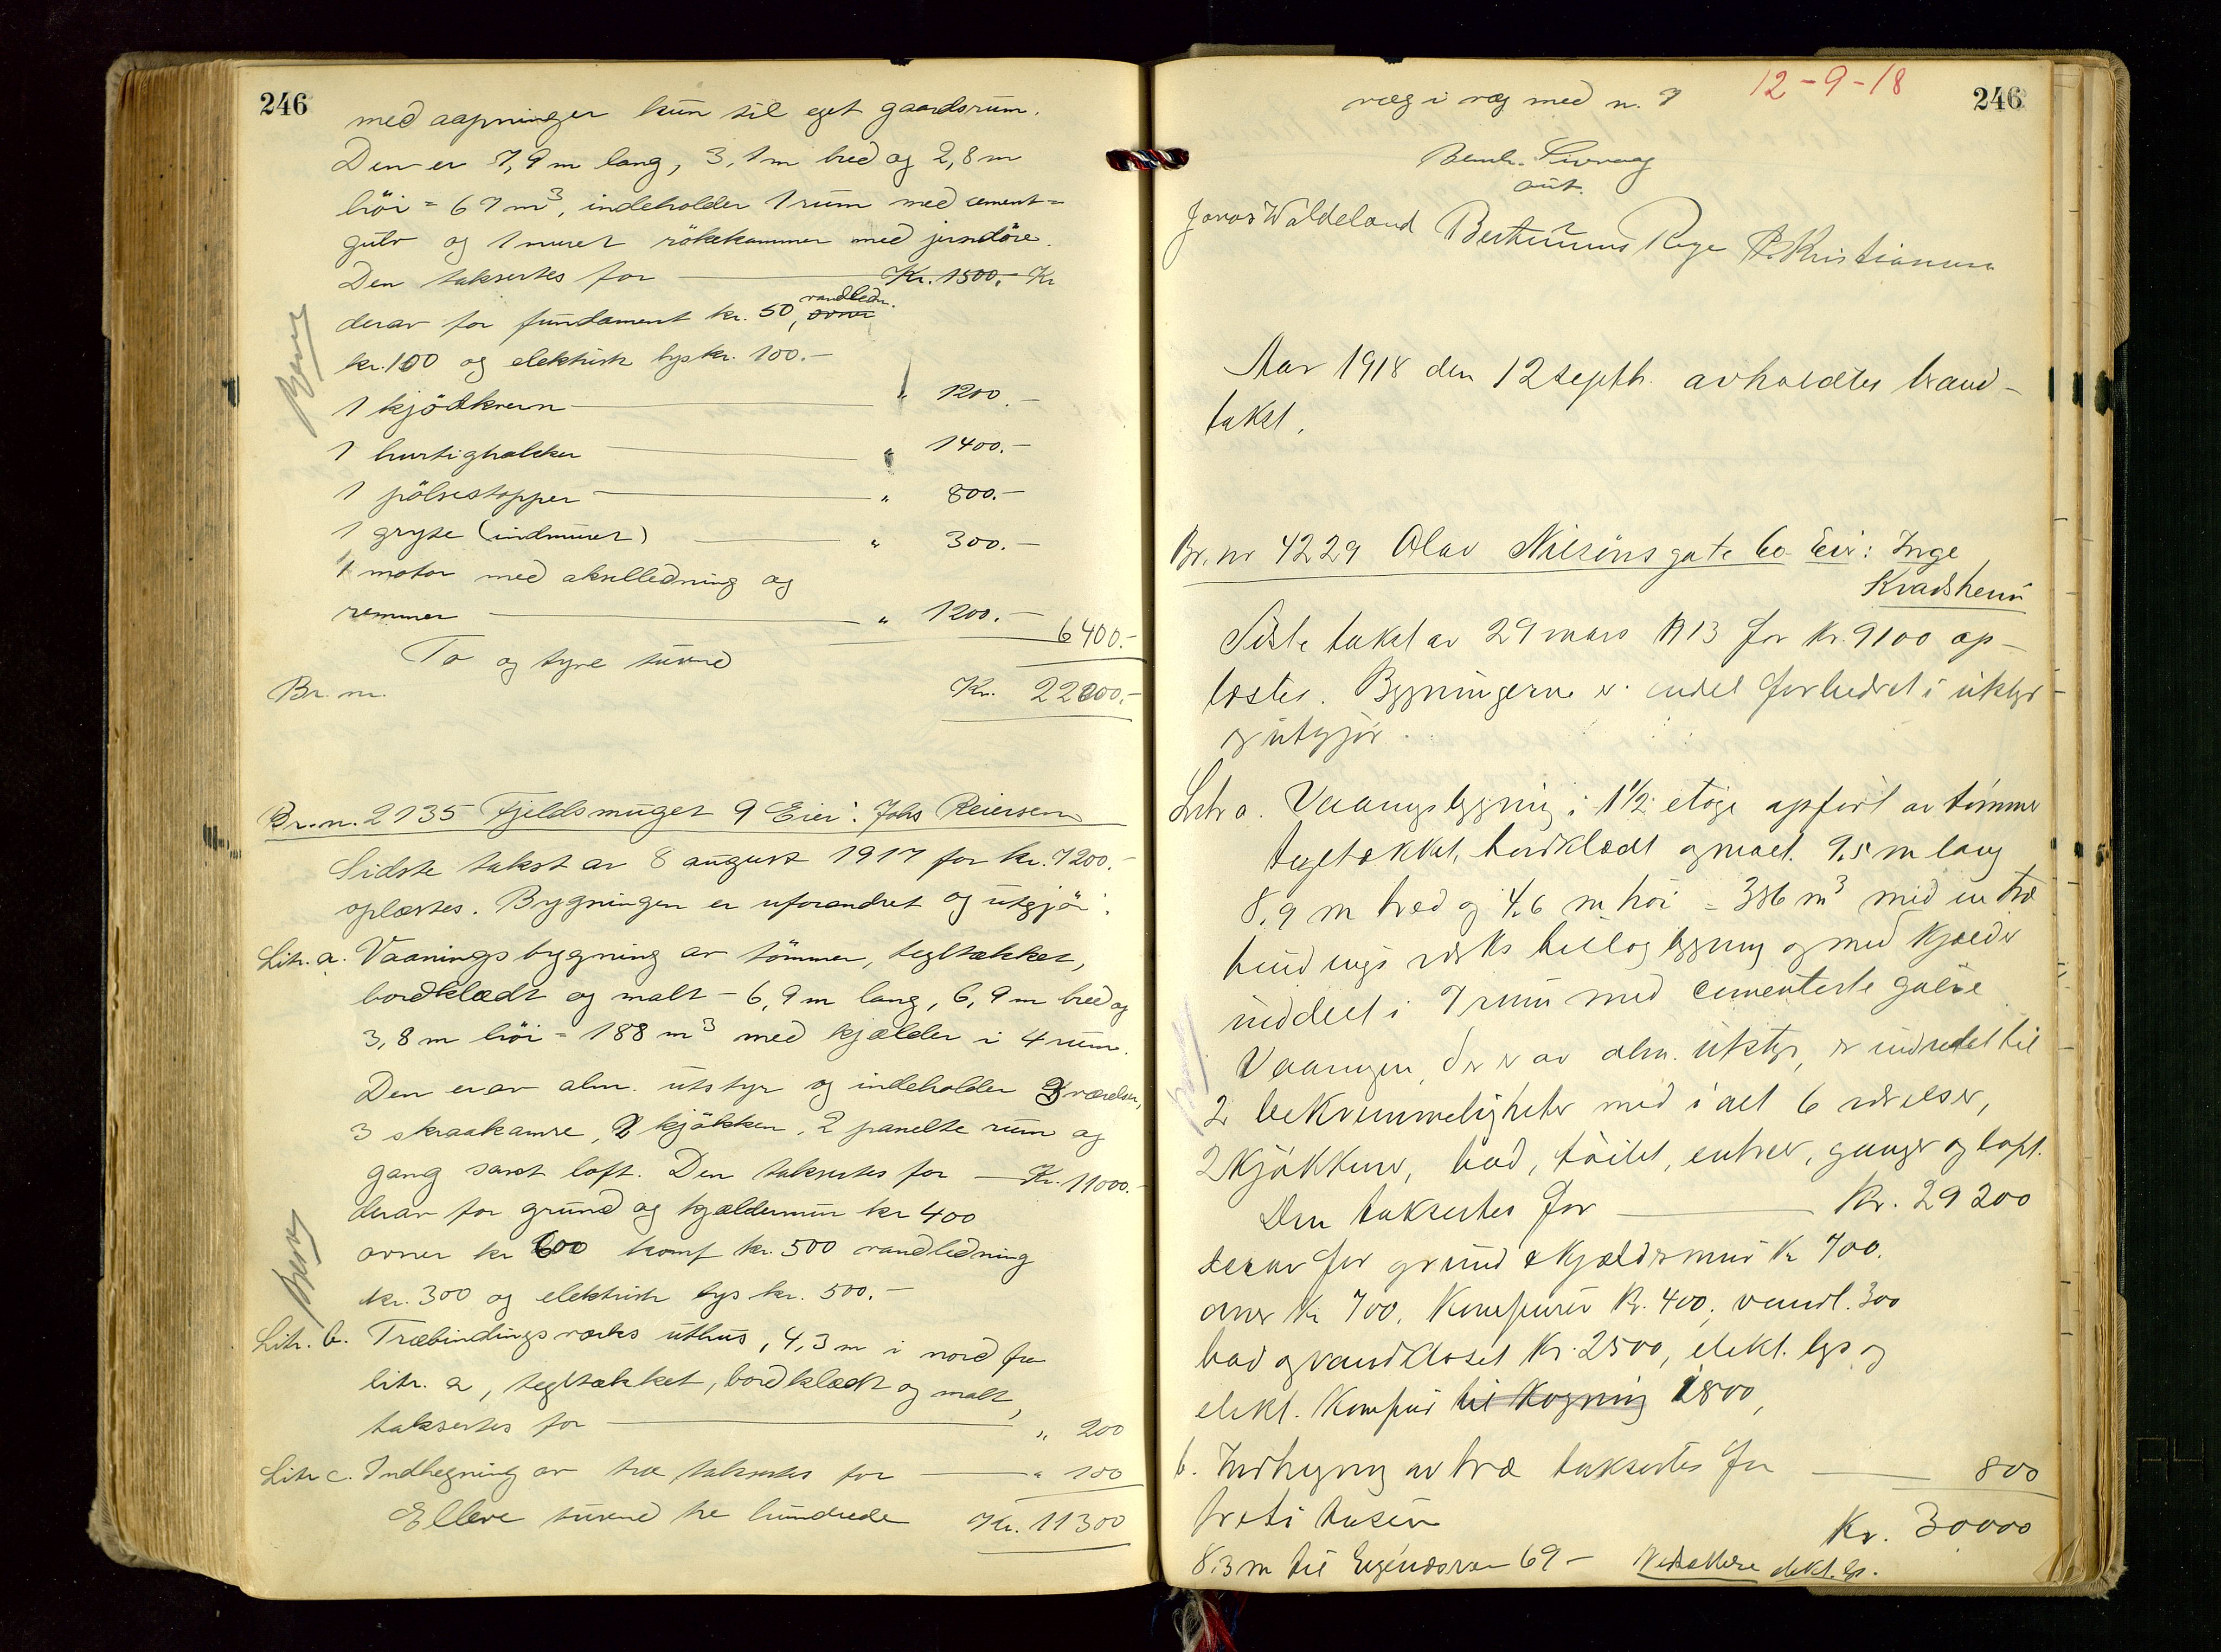 246
med aapninger kun til eget gaardsrum.
Den er 7,9 m lang, 3,1 m bred og 2,8 m
höi = 69 m³, indeholder 1 rum med cement-
gulv og 1 muret rökekammer med jerndöre.
Den taksertes for Kr. 1500,- Kr
derav for fundament kr. 50, ovner vandledn.
kr. 100 og elektrisk lys kr. 100.-
1 kjödkvern " 1200.-
1 hurtighakker " 1400.-
1 pölsestopper " 800.-
1 gryte (indmuret) " 300.-
1 motor med akselledning og
remmer " 1200.-
6400.-
To og tyve tusend
Br. nr. Kr. 22000.-
Br. nr. 2135 Fjeldsmuget 9 Eier: Johs Reiersen
Sidste takst av 8 august 1917 for kr. 7200.-
oplæstes. Bygningen er uforandret og utgjör:
Litr. a. Vaaningsbygning av tömmer, tegltækket,
bordklædt og malt - 6,9 m lang, 6,9 m bred og
3,8 m höi = 188 m³ med kjælder i 4 rum.
Den er av alm. utstyr og indeholder 3 værelser,
3 skraakamre, 2 kjökken, 2 panelte rum og
gang samt loft. Den taksertes for Kr. 11000.-
derav for grund og kjældermur kr 400
ovner kr 600 komf kr. 500 vandledning
kr. 300 og elektrisk lys kr. 500.-
Litr. b. Træbindingsverks uthus, 4,3 m i nord fra
litr. a, tegltækket, bordklædt og malt,
taksertes for " 200
Litr c. Indhegning av træ taksertes for " 100
Elleve tusend tre hundrede Kr. 11300
12-9-18
246
væg i væg med n. 7
Jonas Waldeland Berthinius Rege Kristiansen
Aar 1918 den 12 septbr. avholdtes brand-
takst.
Br. nr 4229 Olav Nilsöns gate 60 Eier: Inge
Kvadsheim
Sidste takst av 29 mars 1913 for kr. 9100 op-
læstes. Bygningerne er endel forbedret i utstyr
og utgjör.
Litr a. Vaaningsbygning i 1½ etage opfört av tömmer
tegltækket, bordklædt og malt. 9,5 m lang
8,9 m bred og 4,6 m höi = 386 m³ med en træ
bindings verks tillogsbygning og med kjælder
inddelt i 7 rum med cementerte gulve.
Vaaningen, der er av alm. utstyr, er indredet til
2 bekvemmeligheter med i alt 6 værelser,
2 kjökkener, bad, toilet, entreer, ganger og loft.
Den taksertes for Kr. 29200
derav for grund & kjældermur kr 700.
ovner kr 700, komfurer kr. 400, vandl. 300
bad og vandkloset kr. 2500, elekt. lys og
elekt. komfur til kogning 1800,
b. Indhegning av træ taksertes for 800
treti tusen Kr. 30000
8,3 m til Eiganesvei 69 - elekt. lys.